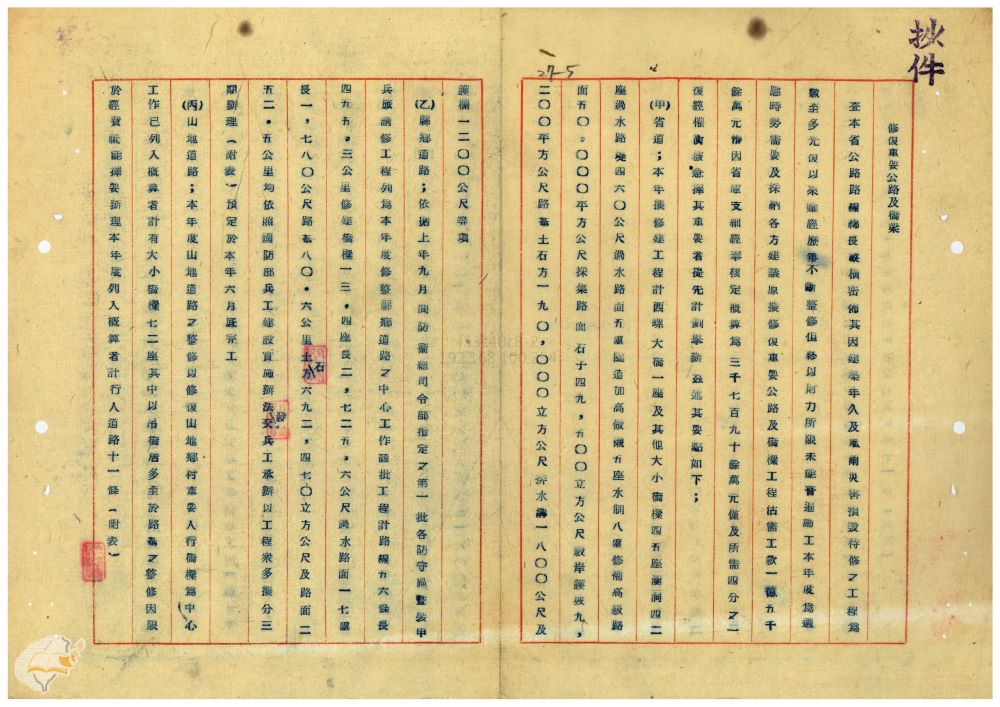 抄件
27-5
修復重要公路及橋梁
查本省公路路線綿長縱橫密佈其因建築年久及風雨災害損毀待修之工程為
數至多光復以來雖經歷年不斷整修但終以財力所限未能普遍施工本年度為適
應時勢需要及採納各方建議原擬修復重要公路及橋樑工程估需工款一億五千
餘萬元惟因省庫支絀經奉核定概算為三千七百九十餘萬元僅及所需四分之一
復經權衡緩急擇其重要者提先計劃舉辦茲述其要點如下；
(甲)省道；本年擬修建工程計西螺大橋一座及其他大小橋樑四五座涵洞四二
座過水路堤四六〇公尺過水路面五處隧道加高做襯五座水制八處修補高級路
面五〇，〇〇〇平方公尺採集路面石子四九，五〇〇立方公尺駁岸護坡九，
二〇〇平方公尺路基土石方一九〇，〇〇〇立方公尺排水溝一八〇〇公尺及
護欄一二〇〇公尺等項
(乙)縣鄉道路；依據上年九月間防衛總司令部指定之第一批各防守區暨裝甲
兵旅請修工程列為本年度修整縣鄉道路之中心工作該批工程計路線五六條長
四五五．三公里修建橋樑一三．四座長二，七二五．六公尺過水路面一七處
長一，七八〇公尺路基八〇．六公里土石方六九二，四七〇立方公尺及路面二
五二．五公里均依照國防部兵工建設實施辦法交兵工承辦以工程衆多擬分三
期辦理（附表）預定於本年六月底完工
(丙)山地道路；本年度山地道路之整修以修復山地鄉村重要人行橋樑為中心
工作已列入概算者計有大小橋樑七二座其中以吊橋居多至於路基之整修因限
於經費祗能擇要辦理本年度列入概算者計行人道路十一條（附表）